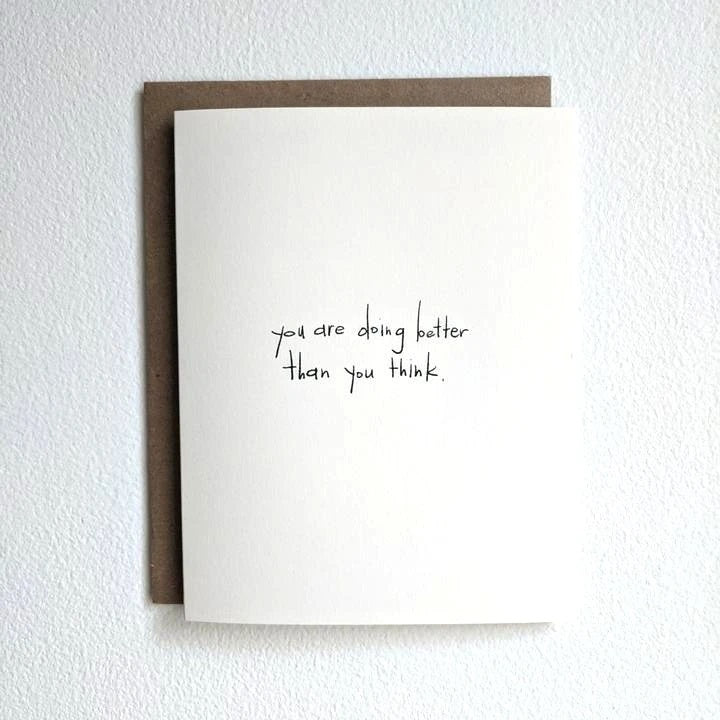 you are doing better
than you think.